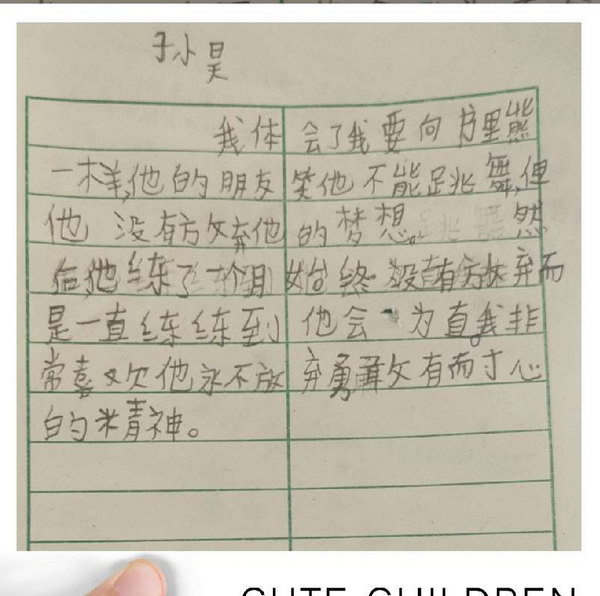 孙小昊
我体会了我要向方里熊
一样,他的朋友笑他不能跳舞,但
他没有放弃他的梦想。跳舞 然
后,他练了一个月始终没有放弃而
是一直练练到他会为直。我非
常喜欢他永不放弃勇敢有而寸心
的米青神。
CUTE CHILDREN